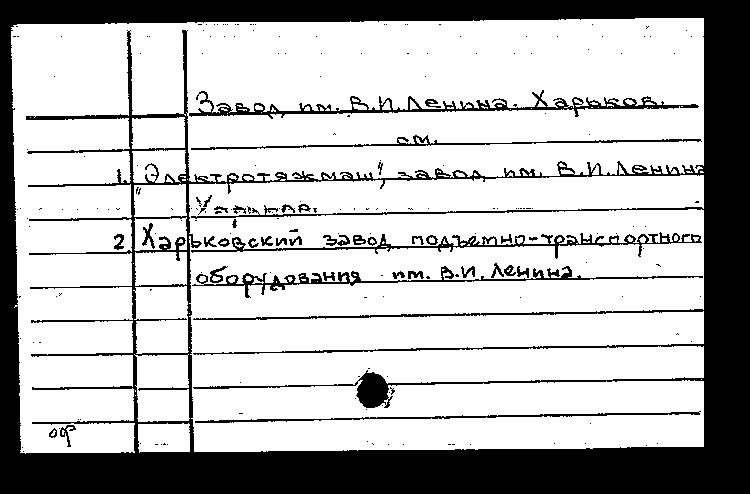 Завод им. В.И. Ленина. Харьков.
см.
1. "Электротяжмаш", завод им. В.И. Ленина
Харьков.
2 Харьковский завод подъемно-транспортного
оборудования им. В.И. Ленина.